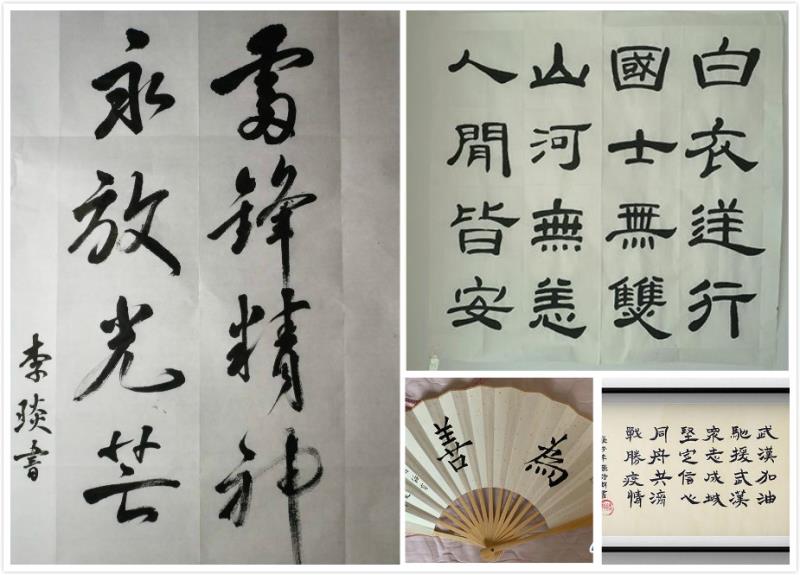 雷鋒精神
永放光芒
李琰書
白衣逆行
國士無雙
山河無恙
人閒皆安
為善
武漢加油
馳援武漢
衆志成城
堅定信心
同舟共濟
戰勝疫情